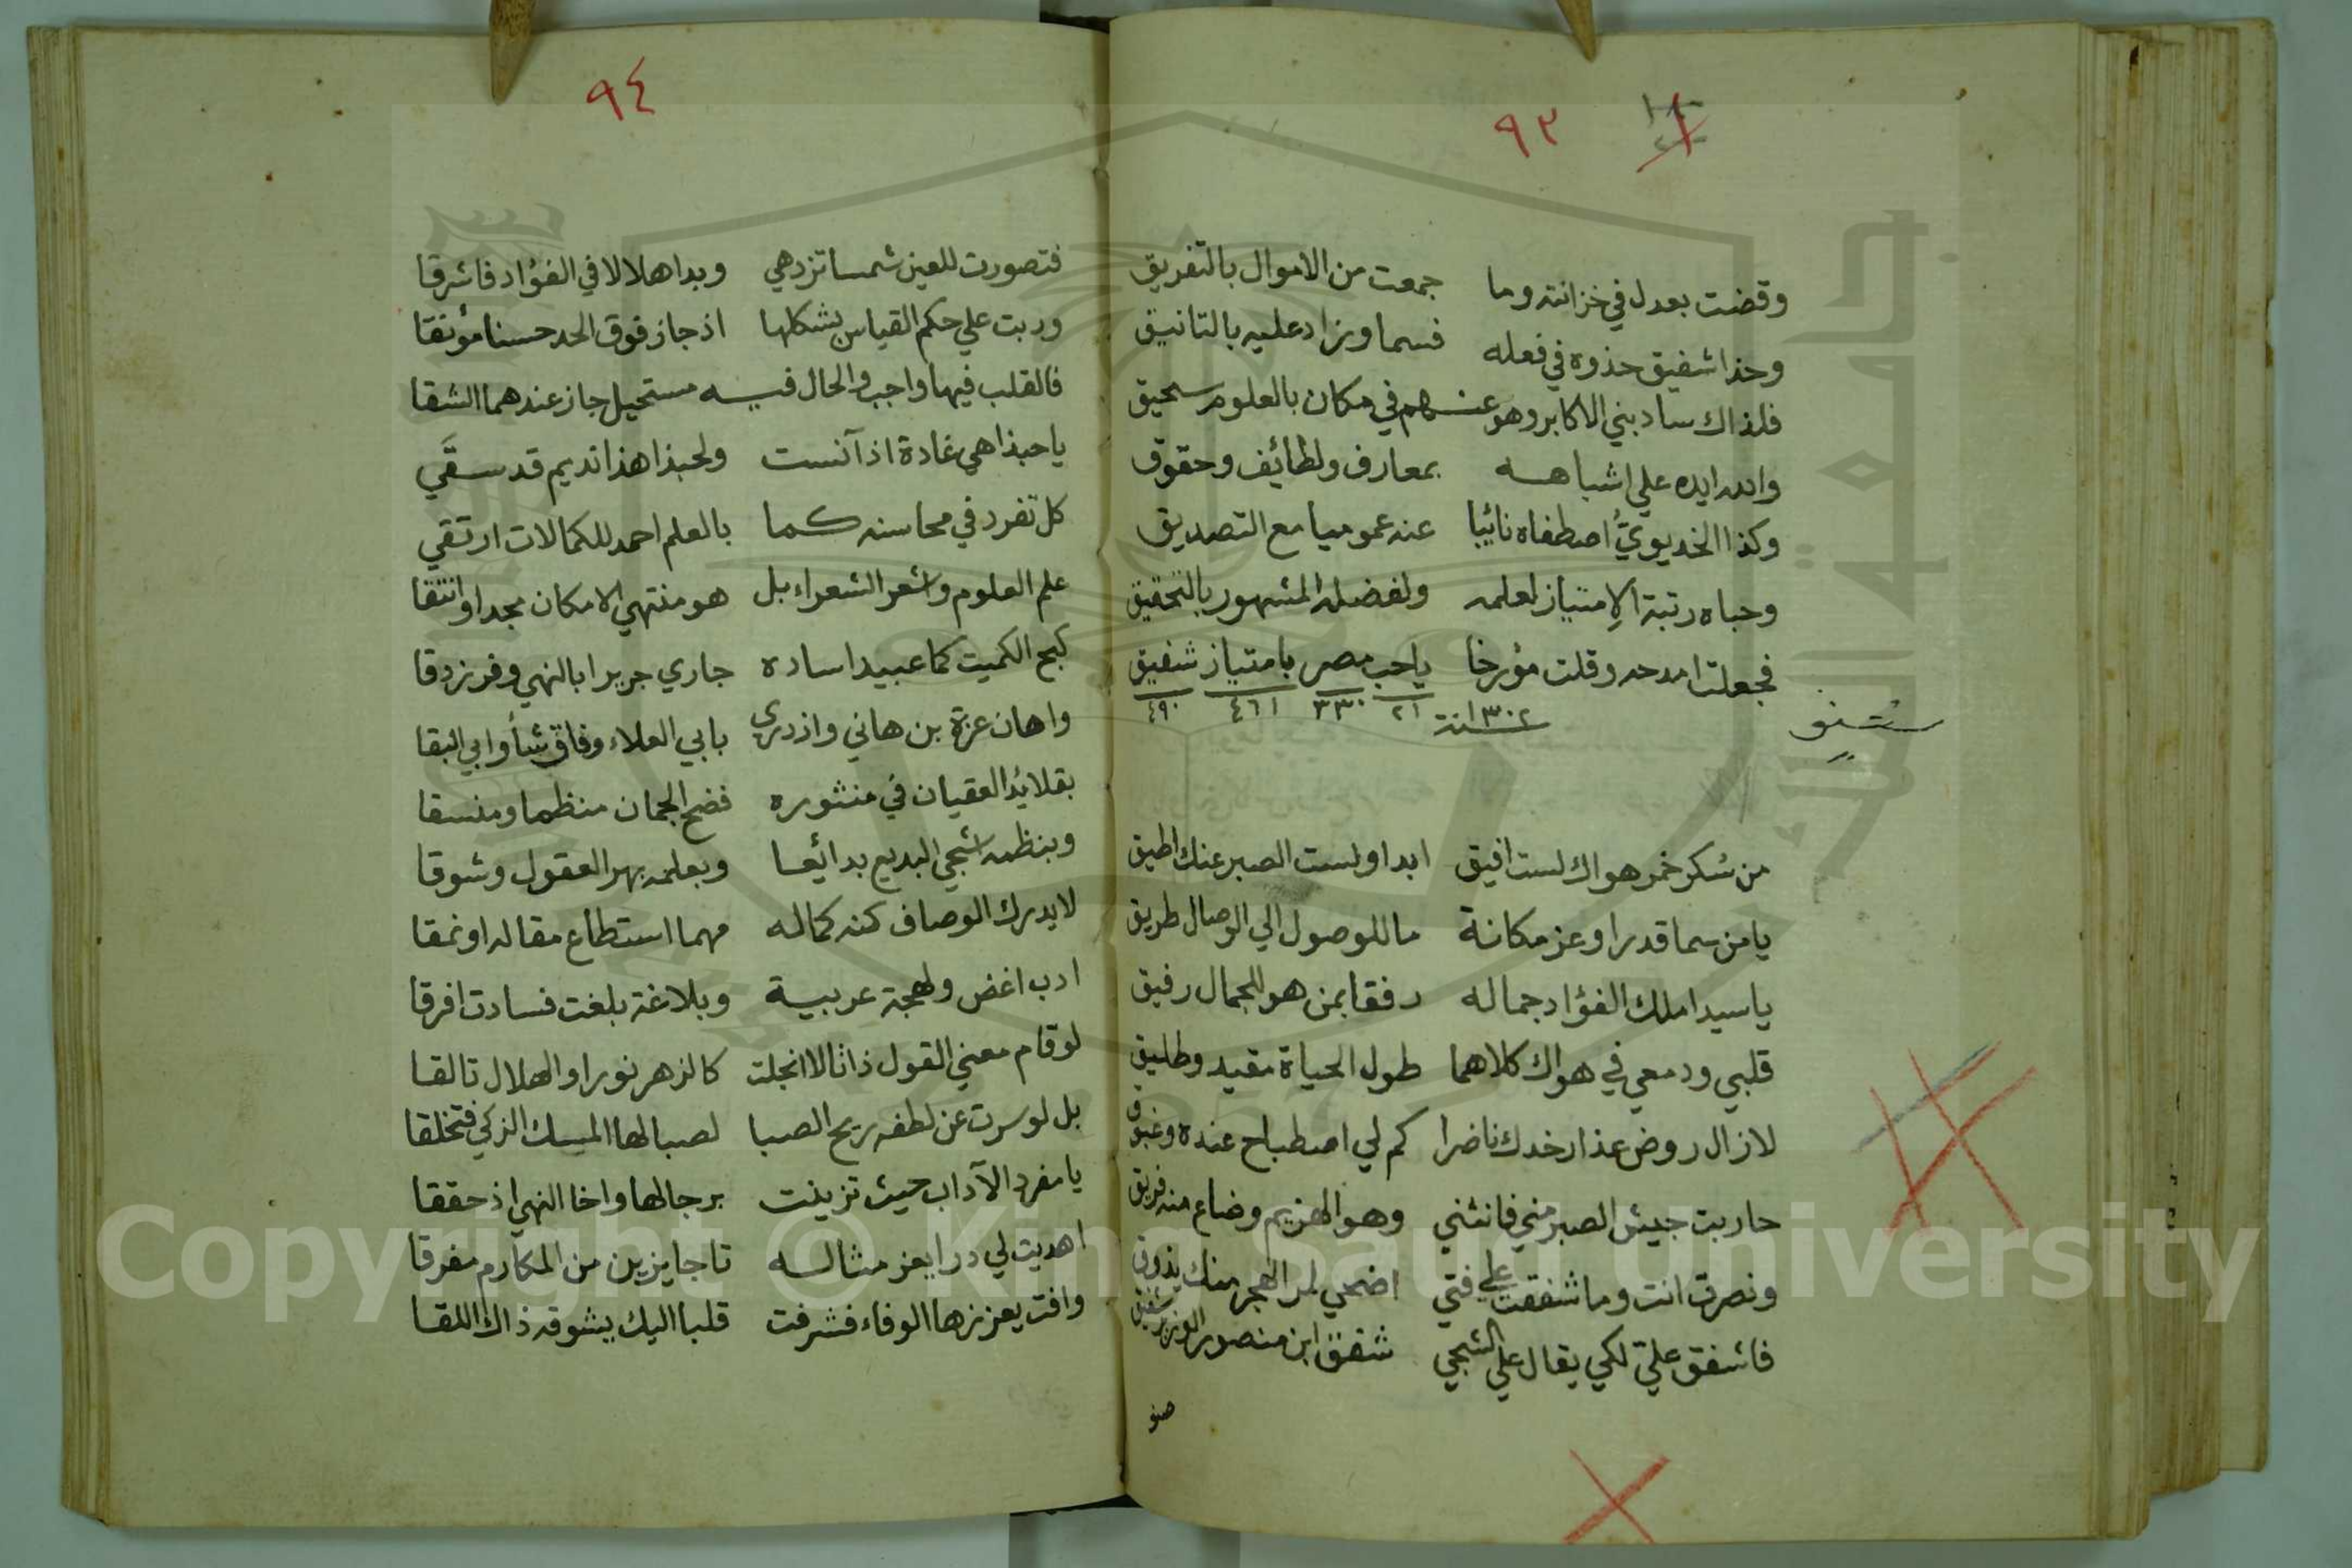 ٩٣
وقضت بعدل في خزانته وما جمعت من الاموال بالتفريق
وحذا شفيق حذوه في فعله فسما وزاد عليه بالتانيق
فلذاك ساد بني الاكابر وهو عنهم في مكان بالعلوم سحيق
والله ايده علي اشباهه بمعارف ولطائف وحقوق
وكذا الخديويُّ اصطفاه نائبا عنه عموميا مع التصديق
وحباه رتبة الامتياز لعلمه ولفضله المشهور بالتحقيق
فجعلت امدحه وقلت مؤرخا ياحب مصر بامتياز شفيق
٢١ ٣٣٠ ٤٦١ ٤٩٠
سنة ١٣٠٢
من سُكر خمر هواك لست افيق ابدا ولست الصبر عنك اطيق
يامن سما قدرا وعز مكانة ما للوصول الي الوصال طريق
ياسيدا ملك الفؤاد جماله رفقا بمن هو للجمال رفيق
قلبي ودمعي في هواك كلاهما طول الحياة مقيد وطليق
لازال روض عذار خدك ناضرا كم لي اصطباح عنده وغبوق
حاربت جيش الصبر مني فانثني وهو الهزيم وضاع منه فريق
ونصرت انت وما شفقت علي فتي اضحي لمر الهجر منك يذوق
فاشفق عليّ لكي يقال علي الشجي شفق ابن منصور الوزير شفيق
٩٤
فتصورت للعين شمسا تزدهي وبدا هلالا في الفؤاد فاشرقا
وربت علي حكم القياس بشكلها اذ جاز فوق الحد حسنا مؤنقا
فالقلب فيها واجب والحال فيه مستحيل جاز عندهما الشقا
ياحبذا هي غادة اذ آنست ولحبذا هذا نديم قد سقَي
كل تفرد في محاسنه كما بالعلم احمد للكمالات ارتقي
علم العلوم واشعر الشعراء بل هو منتهي الامكان مجدا وانتقا
كبح الكميت كما عبيدا ساده جاري جريرا بالنهي وفرزدقا
واهان عزة بن هاني وازدري بابي العلاء وفاق شأو ابي البقا
بقلائد العقيان في منثوره فضح الجمان منظما ومنسقا
وبنظمه اشجي البديع بدائعا وبعلمه بهر العقول وشوقا
لايدرك الوصاف كنه كماله مهما استطاع مقاله او نمقا
ادب اغض ولهجة عربية وبلاغة بلغت فسادت افرقا
لوقام معني القول ذاتا لا انجلت كالزهر نورا والهلال تالقا
بل لو سرت عن لطفه ريح الصبا لصبا لها المسك الزكي فتخلقا
يا مفرد الآداب حيث تزينت برجالها واخا النهي اذ حققا
اهديت لي درا يعز مثاله تاجا يزين من المكارم مفرقا
وافت يعززها الوفاء فشرفت قلبا اليك يشوقه ذاك اللقا